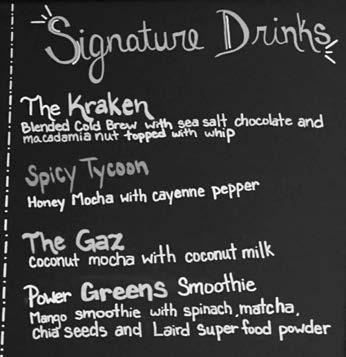 Signature Drinks
The Kraken
Blended Cold Brew with sea salt chocolate and
macadamia nut topped with whip
Spicy Tycoon
Honey Mocha with cayenne pepper
The Gaz
coconut mocha with coconut milk
Power Greens Smoothie
Mango smoothie with spinach, matcha,
chia seeds and Laird super food powder